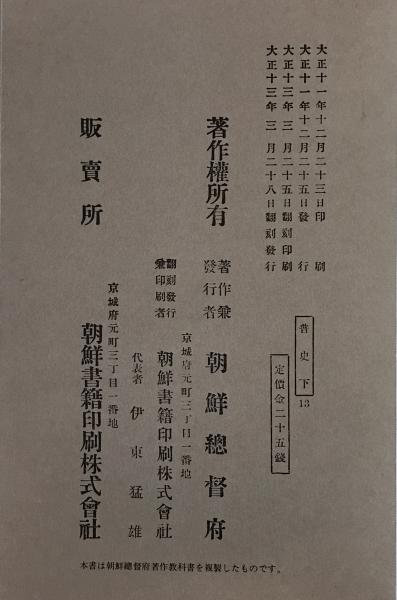 大正十一年十二月二十三日印刷
大正十一年十二月二十五日發行
大正十三年三月二十五日飜刻印刷
大正十三年三月二十八日飜刻發行
普史下13
定價金二十五錢
著作權所有
著作兼
發行者
朝鮮總督府
京城府元町三丁目一番地
飜刻發行
兼印刷者
朝鮮書籍印刷株式會社
代表者 伊東猛雄
京城府元町三丁目一番地
販賣所
朝鮮書籍印刷株式會社
本書は朝鮮總督府著作敎科書を複製したものです。